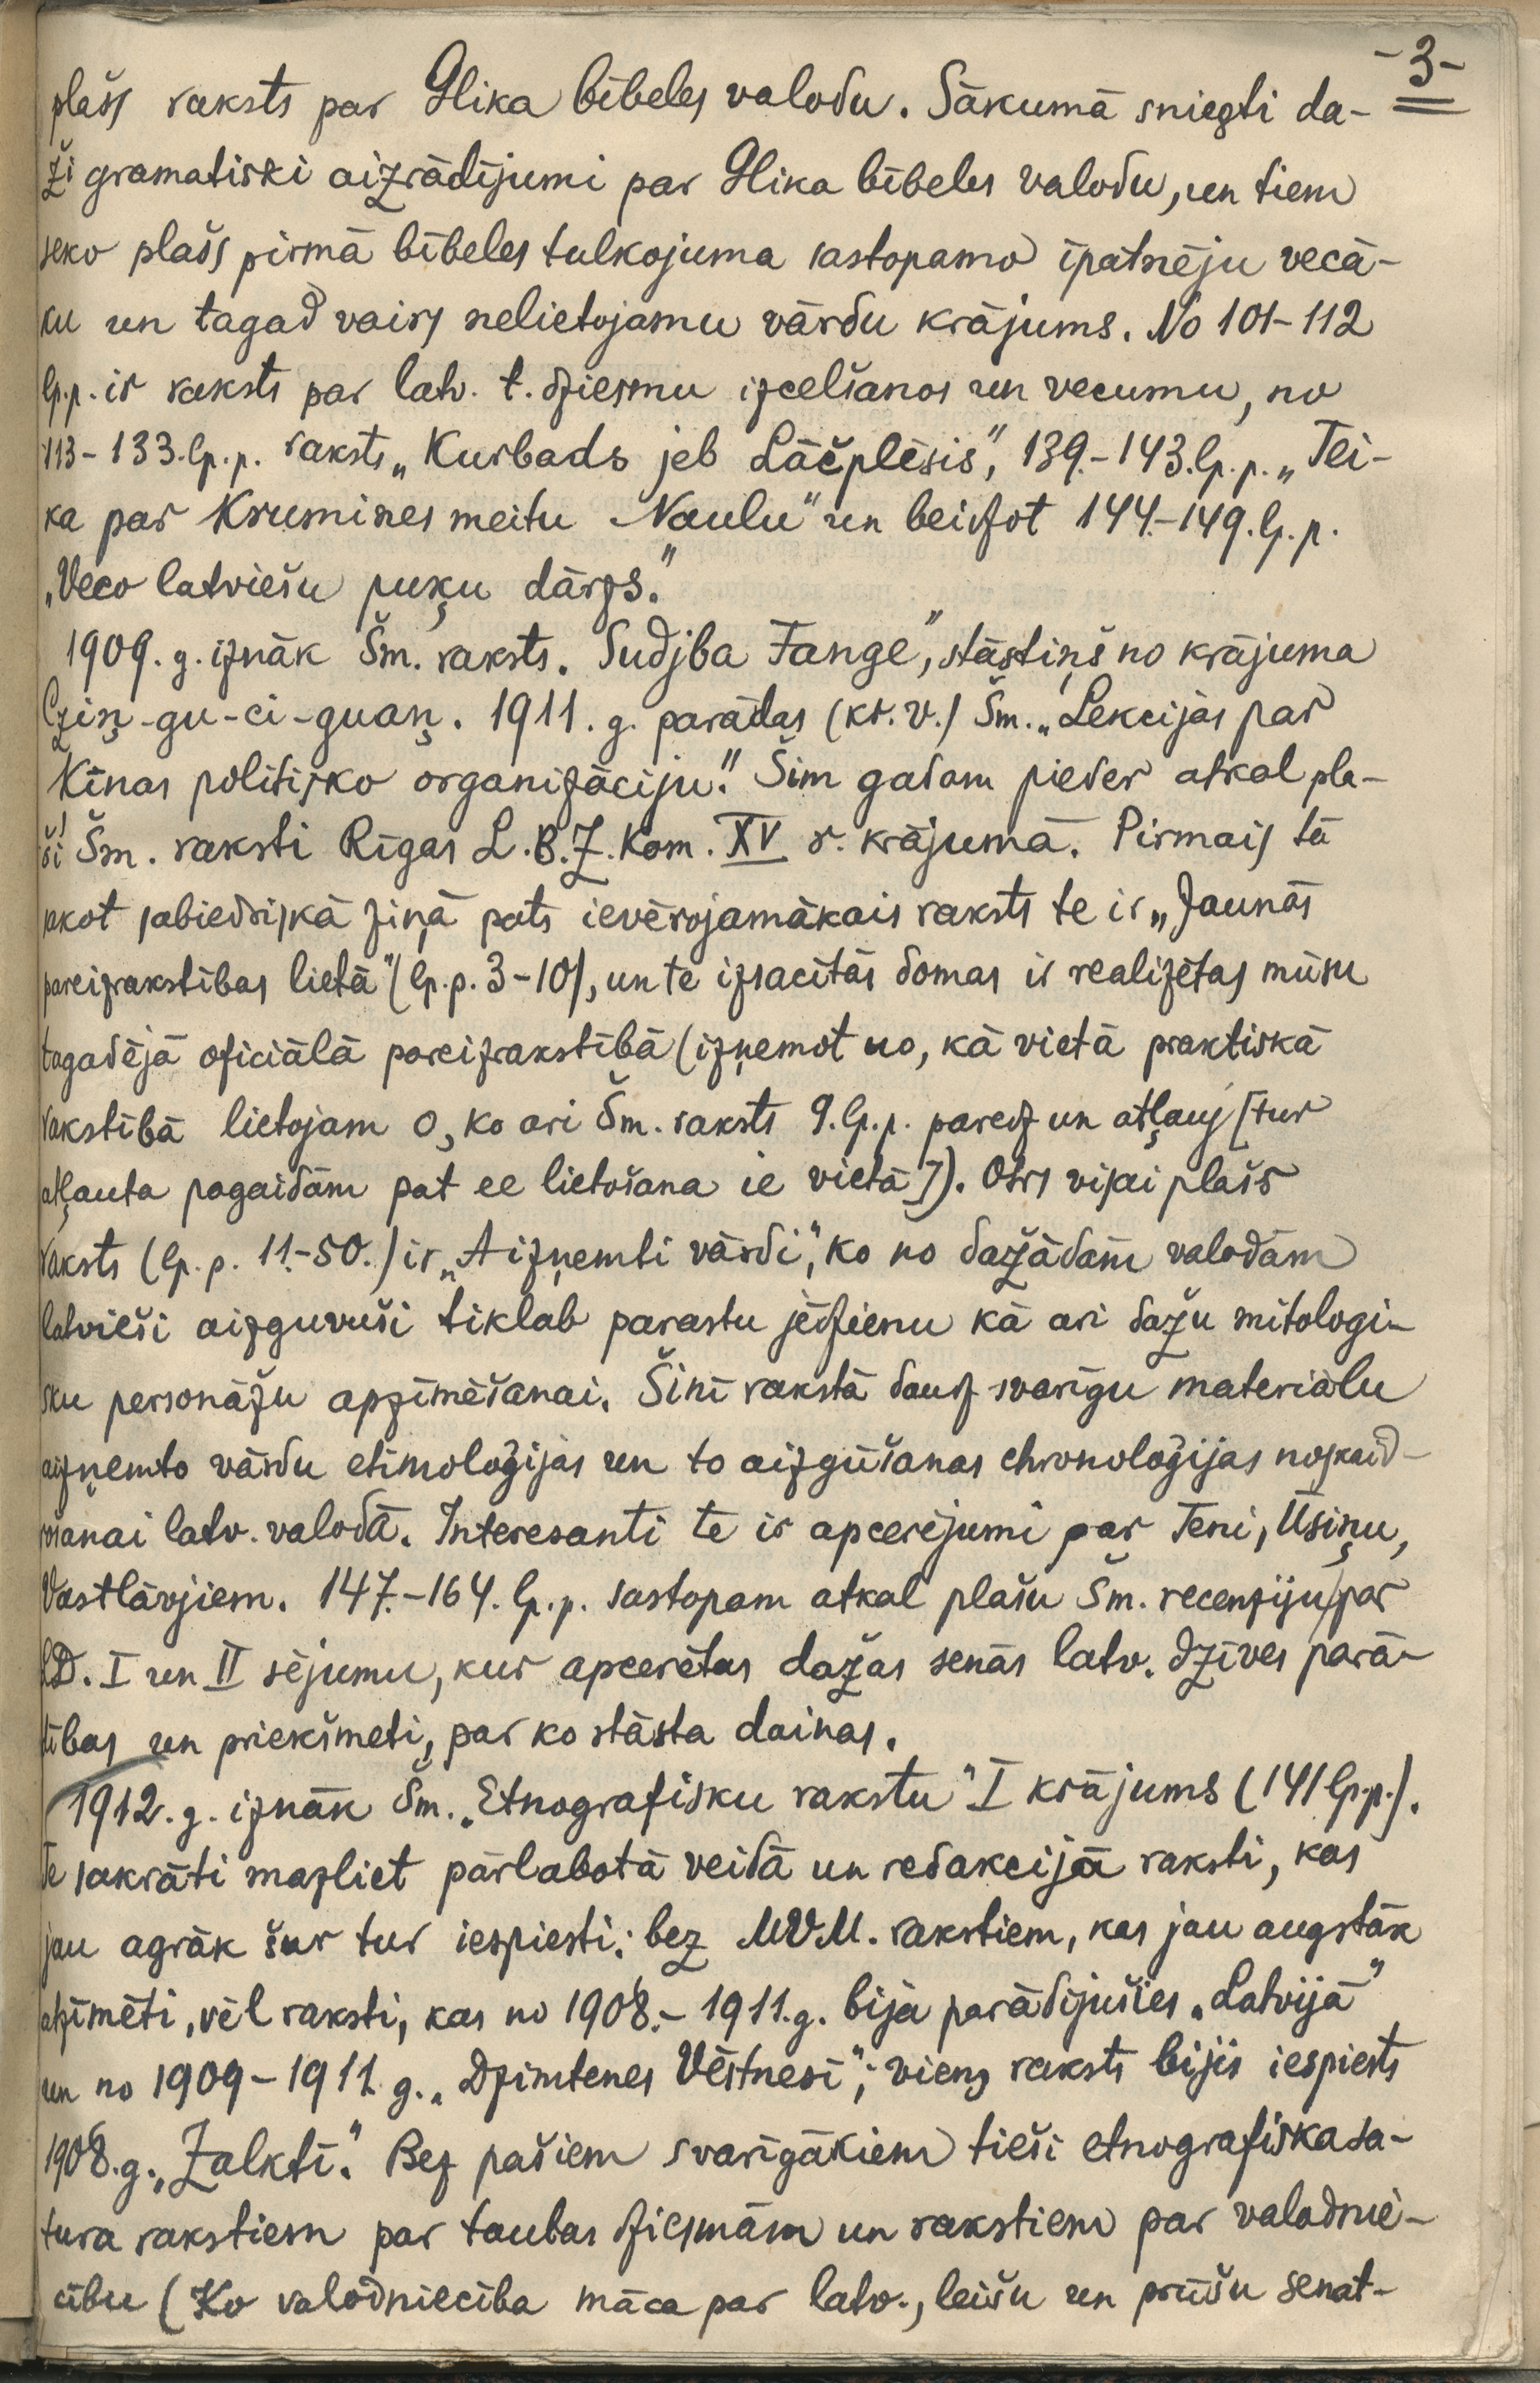 -3-
plašs raksts par Glika bībeles valodu. Sākumā sniegti da-
ži gramatiski aizrādījumi par Glika bībeles valodu, un tiem
seko plašs pirmā bībeles tulkojuma sastopamo īpatnēju vecā-
ku un tagad vairs nelietojamu vārdu krājums. No 101-112
lp.p. ir raksts par latv. t. dziesmu izcelšanos un vecumu, no
113-133. lp.p. raksts „Kurbads jeb Lāčplēsis", 139.-143. lp.p. „Tei-
ka par Krumines meitu Naulu" un beidzot 144.-149. lp.p.
„Veco latviešu puķu dārzs."
1909. g. iznāk Šm. raksts. Sudjba Fange", stāstiņš no krājuma
Czin-gu-ci-guaņ. 1911. g. parādas (kr. v.) Šm. „Lekcijas par
Ķīnas politisko organizāciju." Šim gadam pieder atkal pla-
ši Šm. raksti Rīgas L.B.Z.Kom. XV r. krājumā. Pirmais tā
sakot sabiedriskā ziņā pats ievērojamākais raksts te ir „Jaunās
pareizrakstības lietā" (lp.p. 3-10), un te izsacītās domas ir realizētas mūsu
tagadējā oficiālā pareizrakstībā (izņemot uo, kā vietā praktiskā
rakstībā lietojam o, ko ari Šm. raksts 9. lp.p. paredz un atļauj [tur
atļauta pagaidām pat ee lietošana ie vietā]). Otrs visai plašs
raksts (lp.p. 11.-50.) ir „Aizņemti vārdi", ko no dažādām valodām
latvieši aizguvuši tiklab parastu jēdzienu kā ari dažu mitologi-
sku personāžu apzīmēšanai. Šinī rakstā daudz svarīgu materiālu
aizņemto vārdu etimoloģijas un to aizgūšanas chronoloģijas noskaid-
rošanai latv. valodā. Interesanti te ir apcerējumi par Teni, Ūsiņu,
Vastlāvjiem. 147.-164. lp.p. sastopam atkal plašu Šm. recenziju par
LD. I un II sējumu, kur apcerētas dažas senās latv. dzīves parā-
dības un priekšmeti, par ko stāsta dainas.
1912. g. iznāk Šm. „Etnografisku rakstu" I krājums (141 lp.p.).
Te sakrāti mazliet pārlabotā veidā un redakcijā raksti, kas
jau agrāk šur tur iespiesti: bez MVM. rakstiem, kas jau augstāk
atzīmēti, vēl raksti, kas no 1908.-1911. g. bija parādījušies „Latvijā"
un no 1909-1911. g. „Dzimtenes Vēstnesī"; viens raksts bijis iespiests
1908. g. „Zalktī." Bez pašiem svarīgākiem tieši etnografiska sa-
tura rakstiem par tautas dziesmām un rakstiem par valodnie-
cību (Ko valodniecība māca par latv., leišu un prūšu senat-